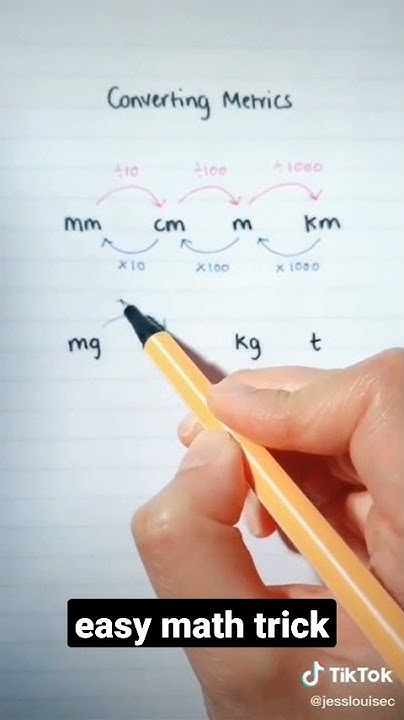 Converting Metrics
÷10 ÷100 ÷1000
mm cm m km
×10 ×100 ×1000
mg kg t
easy math trick
TikTok
@jesslouisec